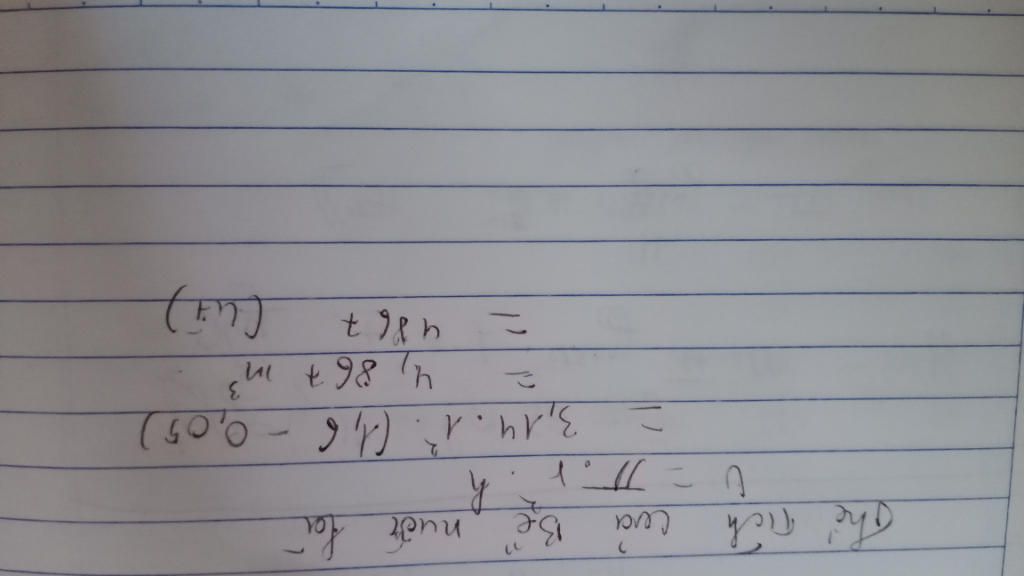 Thể tích của Bể nước là
V = π . r² . h
= 3,14 . 1² . (1,6 - 0,05)
= 4,867 m³
= 4867 (lít)